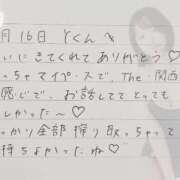 月16日 Yくんへ
いにきてくれてありがとう♡
っちゃマイペースで、The・関西
感じで、お話してて とっても
しかった〜♡
っかり全部搾り取っちゃって
持ちよかったね♡